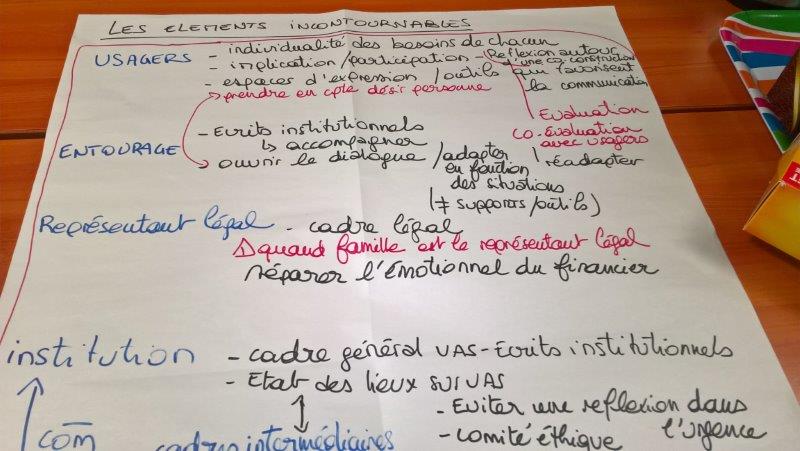 LES ELEMENTS INCONTOURNABLES
USAGERS - individualité des besoins de chacun
- implication/participation - Reflexion autour
d'une co-construction
- espaces d'expression /outils qui favorisent
la communication
prendre en cpte désir personne
Evaluation
- Ecrits institutionnels
co-évaluation
avec usagers
↳ accompagner
ENTOURAGE
ouvrir le dialogue /adapter
en fonction
des situations
(≠ supports/outils)
réadapter
Représentant légal - cadre légal
⚠ quand famille est le représentant légal
séparer l'émotionnel du financier
institution - cadre général VAS - Ecrits institutionnels
- Etat des lieux sur VAS
- Eviter une reflexion dans
l'urgence
com
cadres intermédiaires
- comité éthique